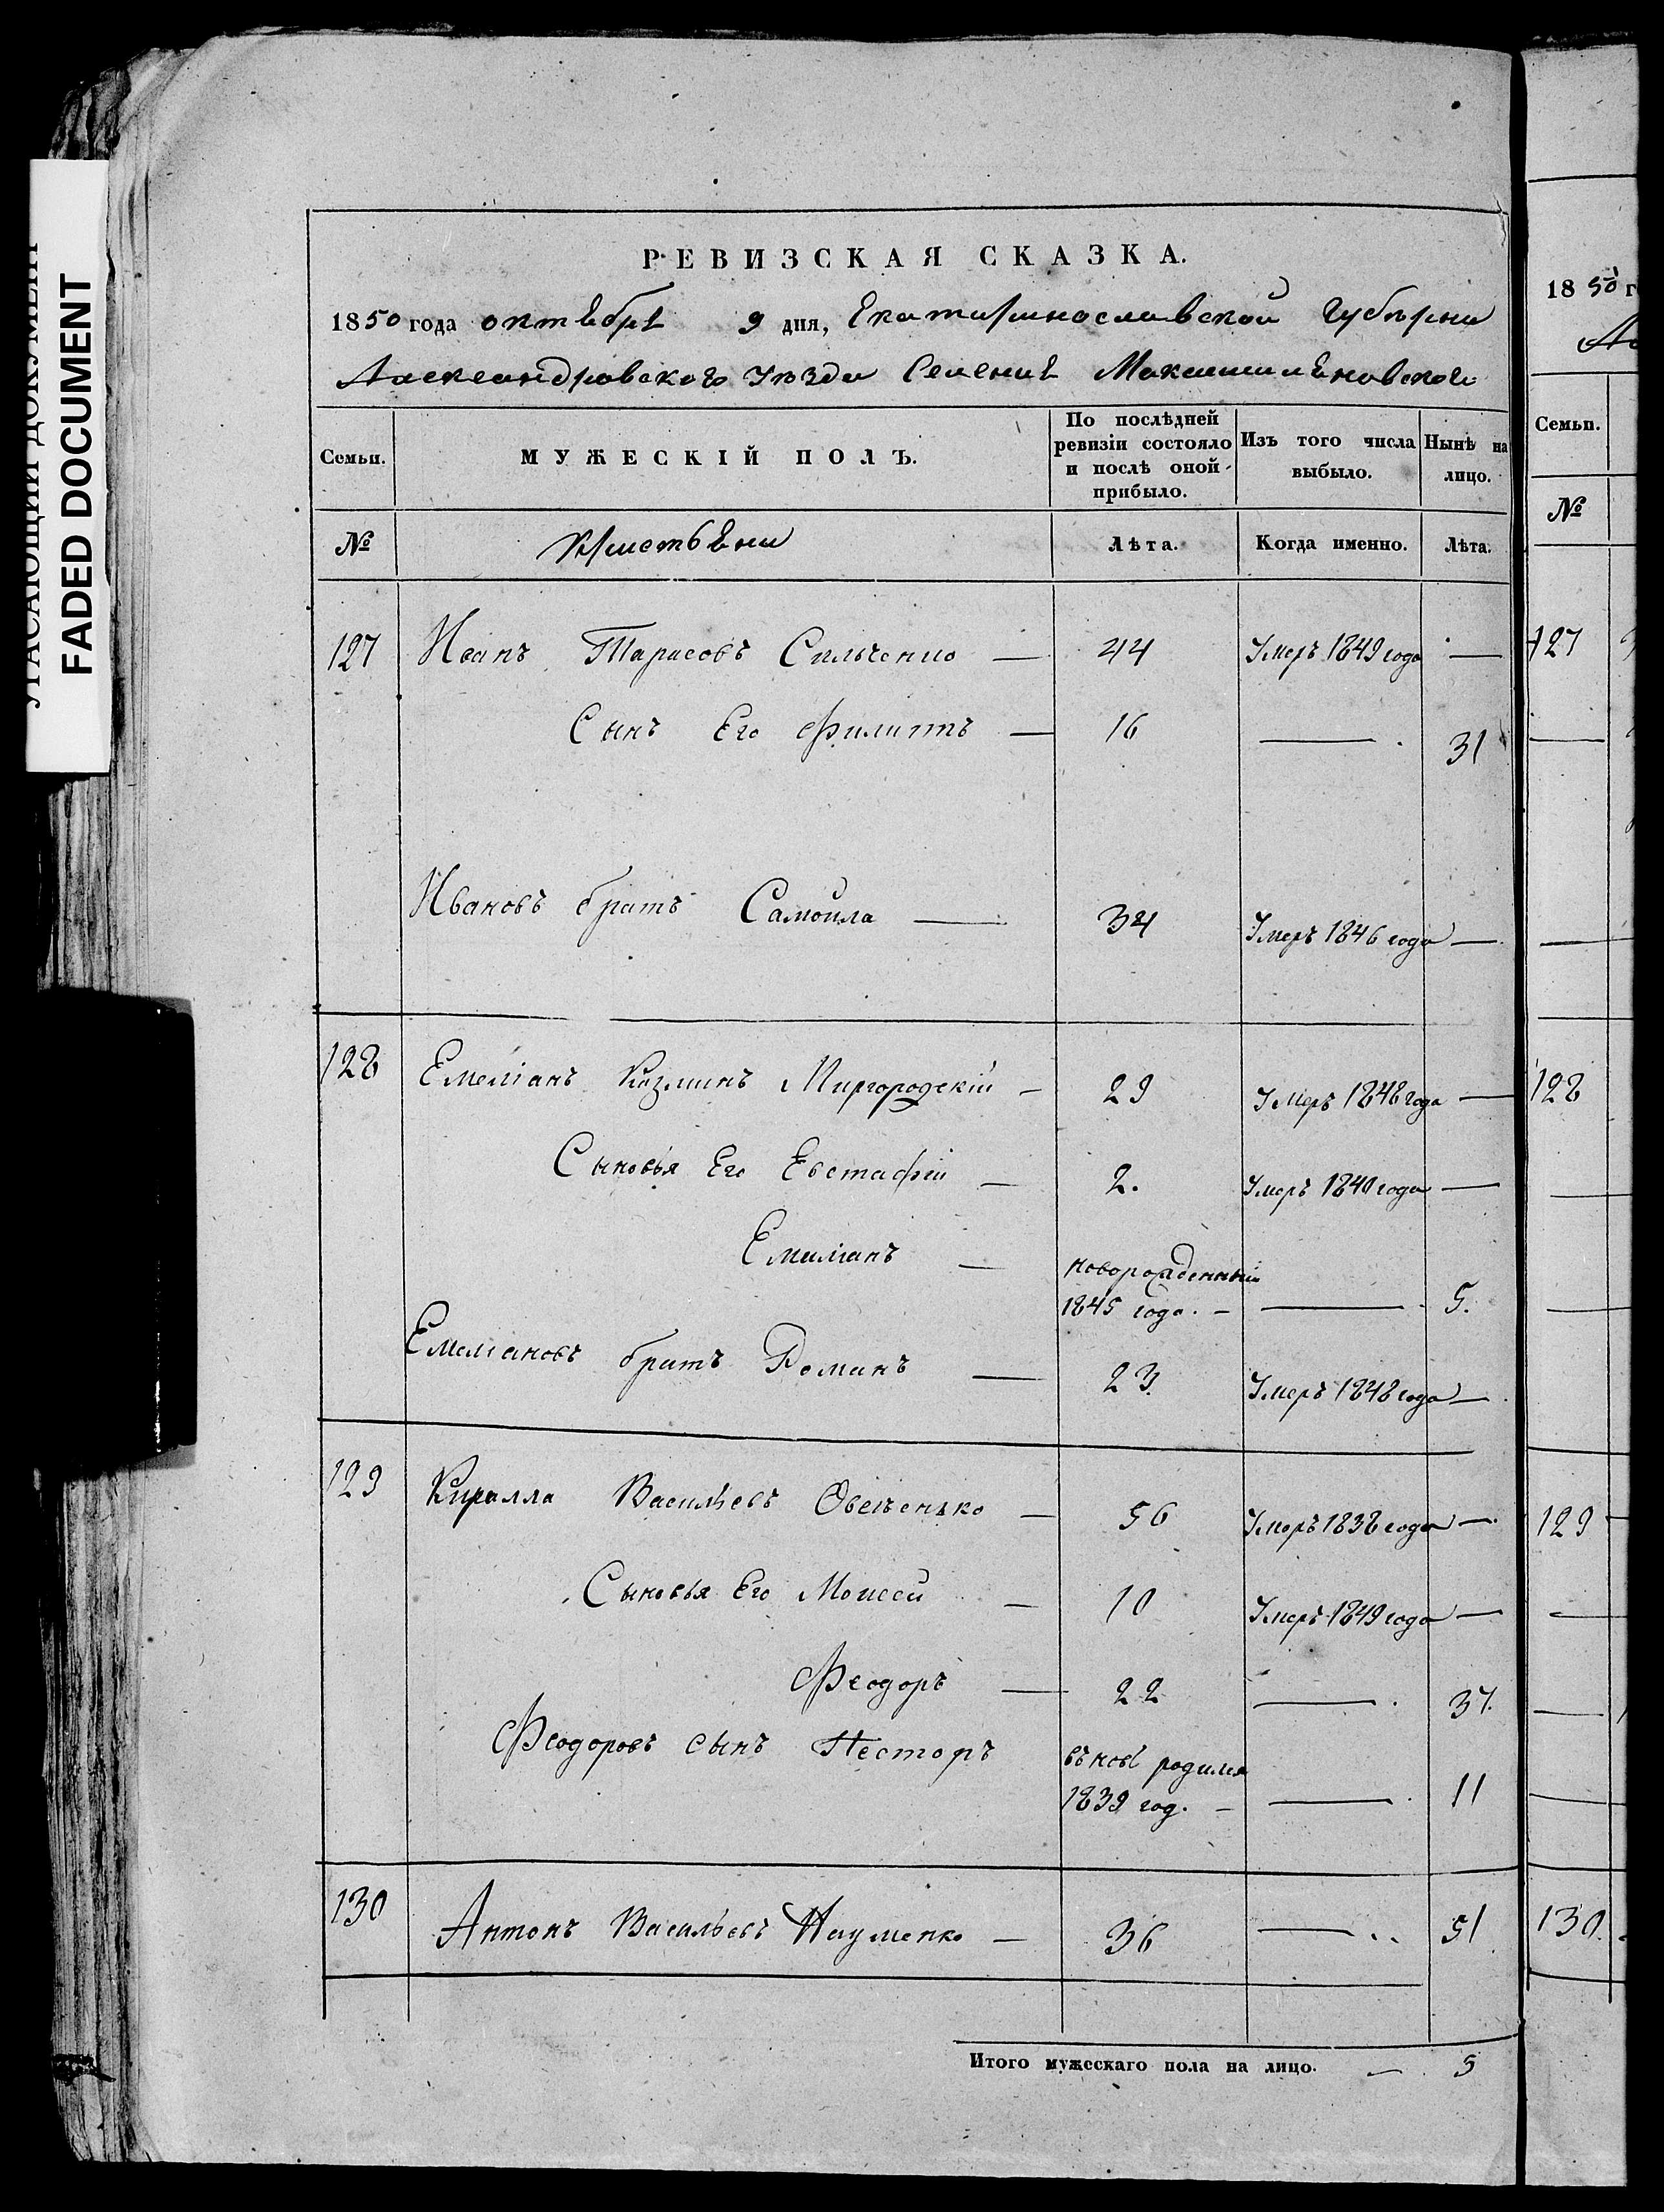 УГАСАЮЩИЙ ДОКУМЕНТ
FADED DOCUMENT
РЕВИЗСКАЯ СКАЗКА.
1850 года октября 9 дня, Екатеринославской Губерни
Александровского Уезда Селения Максимильяновского
Семьи. МУЖЕСКІЙ ПОЛЪ. По послѣдней ревизіи состояло и послѣ оной прибыло. Изъ того числа выбыло. Нынѣ на лицо.
№ Лѣта. Когда именно. Лѣта.
127 Иванъ Тарасовъ Сильченко — 44 Умеръ 1849 года —
Сынъ Его Филиппъ — 16 — 31
Ивановъ братъ Самойла — 34 Умеръ 1846 года —
128 Емеліанъ Козминъ Миргородскій — 29 Умеръ 1848 года —
Сыновья Его Евстафій — 2. Умеръ 1840 года —
Емиліанъ — новорожденный
1845 года. — — 5.
Емеліановъ братъ Романъ — 23. Умеръ 1848 года —
129 Кирилла Васильевъ Овсѣенько — 56 Умеръ 1838 года —
Сыновья Его Моисей — 10 Умеръ 1849 года —
Феодоръ — 22 — 37.
Феодоровъ сынъ Несторъ въновѣ родился
1839 год. — — 11
130 Антонъ Васильевъ Науменко — 36 — 51
Итого мужескаго пола на лицо. — 5
1850 г
Ал
Семьи.
№
127
128
129
130.